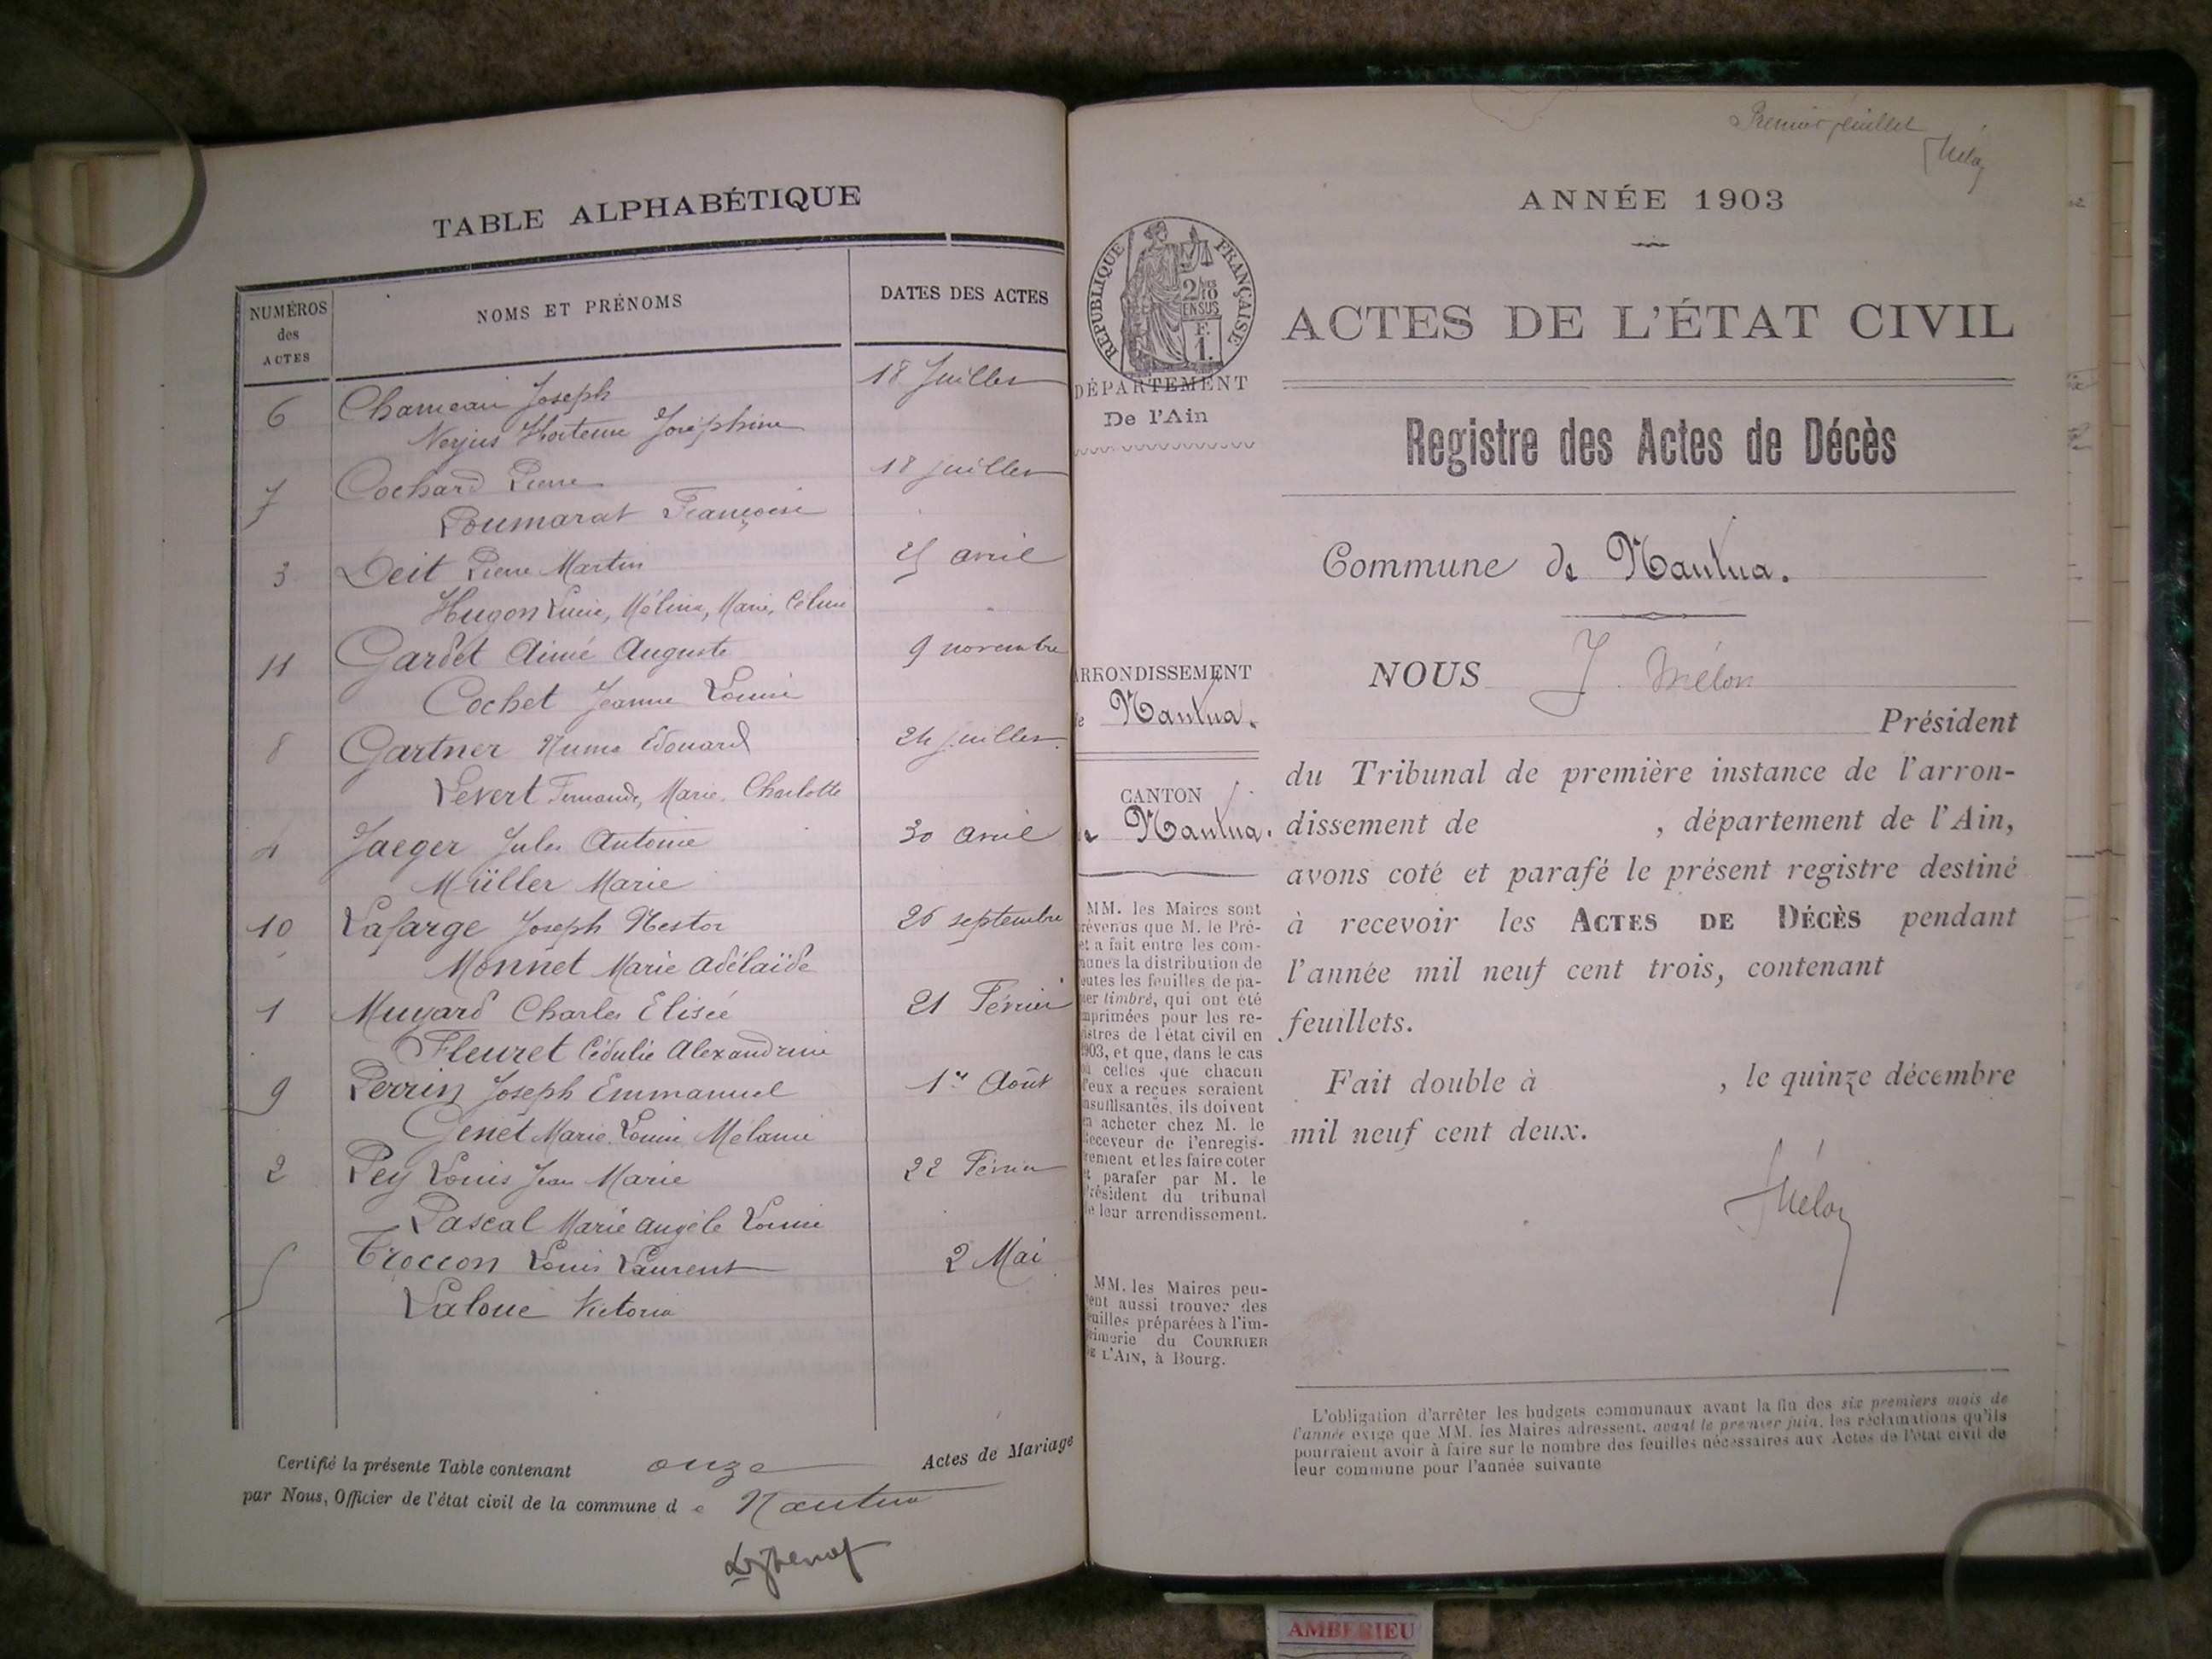 TABLE ALPHABÉTIQUE
NUMÉROS des ACTES
NOMS ET PRÉNOMS
DATES DES ACTES
6 Chameau Joseph 18 Juillet
Hortense Joséphine
7 Cochard Pierre 18 juillet
Poumarat Françoise
3 Deit Pierre Martin 25 avril
Hugon Lucie, Mélina, Marie, Céline
11 Gardet Aimé Auguste 9 novembre
Cochet Jeanne Louise
8 Gartner Numa Edouard 24 juillet
Levert Fernande, Marie, Charlotte
4 Jaeger Jules Antoine 30 avril
Müller Marie
10 Lafarge Joseph Nestor 26 septembre
Monnet Marie Adélaïde
1 Muyard Charles Elisée 21 Février
Fleuret Cédulie Alexandrine
9 Perrin Joseph Emmanuel 1er Août
Genet Marie Louise Mélanie
2 Pey Louis Jean Marie 22 Février
Pascal Marie Angèle Louise
5 Troccon Louis Laurent 2 Mai
Laloue Victoria
Certifié la présente Table contenant onze Actes de Mariage
par Nous, Officier de l'état civil de la commune de Nantua
Premier feuillet
Mélon
ANNÉE 1903
RÉPUBLIQUE FRANÇAISE
2/10 EN SUS
F. 1.
ACTES DE L'ÉTAT CIVIL
DÉPARTEMENT
De l'Ain
Registre des Actes de Décès
Commune de Nantua.
NOUS J. Mélon
Président
du Tribunal de première instance de l'arron-
dissement de , département de l'Ain,
avons coté et parafé le présent registre destiné
à recevoir les ACTES DE DÉCÈS pendant
l'année mil neuf cent trois, contenant
feuillets.
Fait double à , le quinze décembre
mil neuf cent deux.
Mélon
ARRONDISSEMENT
de Nantua.
CANTON
de Nantua.
MM. les Maires sont
prévenus que M. le Pré-
fet a fait entre les com-
munes la distribution de
toutes les feuilles de pa-
pier timbré, qui ont été
imprimées pour les re-
gistres de l'état civil en
1903, et que, dans le cas
où celles que chacun
d'eux a reçues seraient
insuffisantes, ils doivent
en acheter chez M. le
Receveur de l'enregis-
trement et les faire coter
et parafer par M. le
Président du tribunal
de leur arrondissement.
MM. les Maires peu-
vent aussi trouver des
feuilles préparées à l'im-
primerie du COURRIER
DE L'AIN, à Bourg.
L'obligation d'arrêter les budgets communaux avant la fin des six premiers mois de
l'année exige que MM. les Maires adressent, avant le premier juin, les réclamations qu'ils
pourraient avoir à faire sur le nombre des feuilles nécessaires aux Actes de l'état civil de
leur commune pour l'année suivante
AMBERIEU